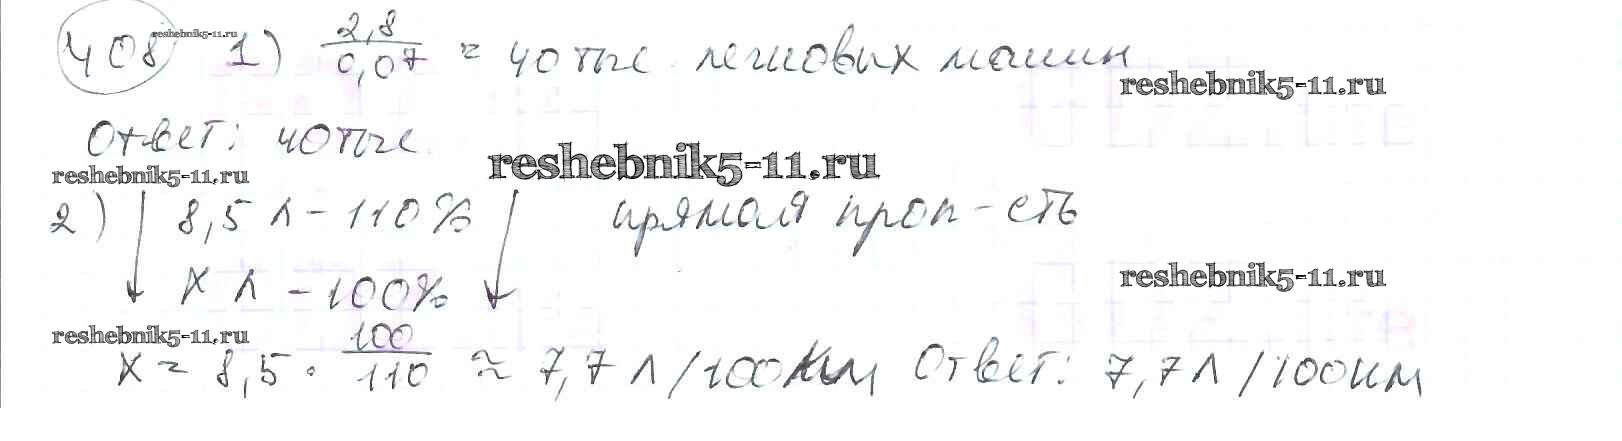 408 reshebnik5-11.ru 1) 2,8/0,07 = 40 тыс. легковых машин
reshebnik5-11.ru
Ответ: 40 тыс.
reshebnik5-11.ru
reshebnik5-11.ru
2) ↓ 8,5 л - 110% ↓ прямая проп-сть
x л - 100%
reshebnik5-11.ru
reshebnik5-11.ru
x = 8,5 · 100/110 ≈ 7,7 л/100км Ответ: 7,7 л/100км